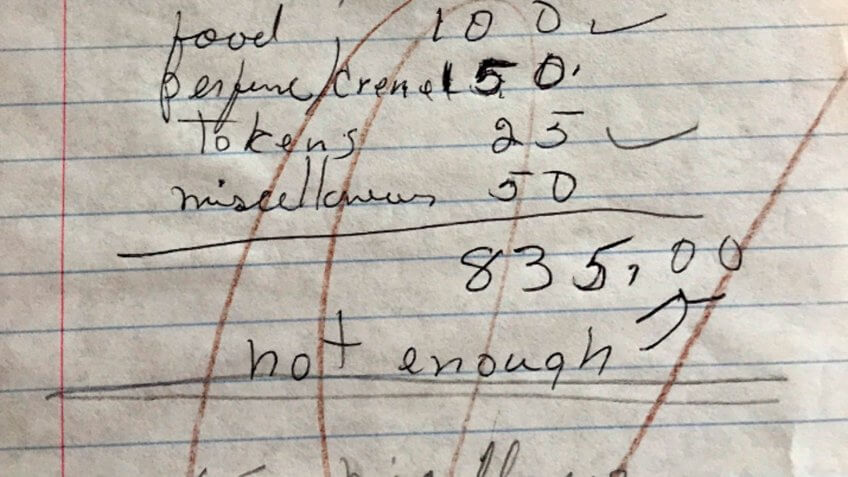 food 100
perfume/creme 150.
Tokens 25
miscellaneous 50
835.00
not enough